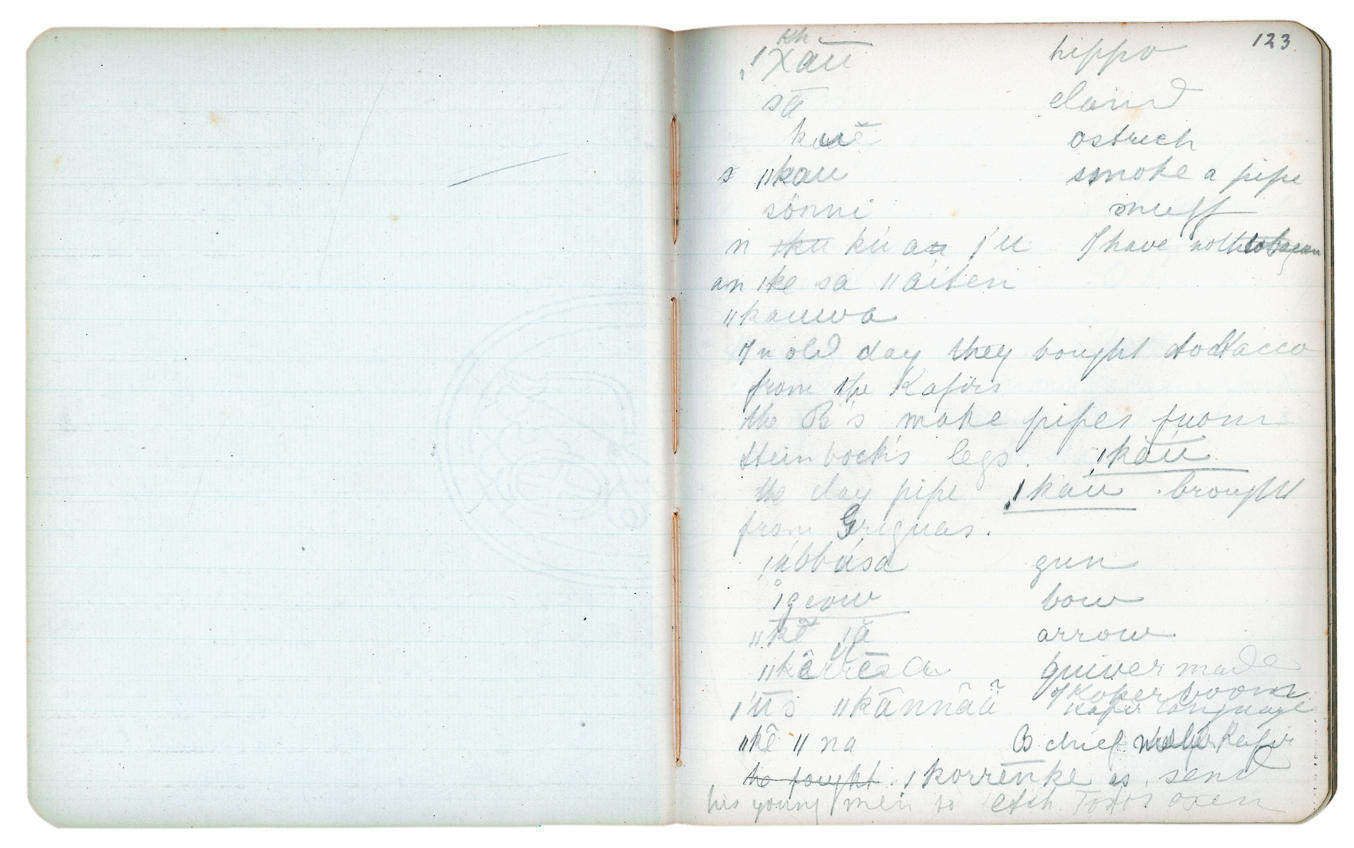 123
kh
ǃxau hippo
sā eland
kuĕ ostrich
s ǁkau smoke a pipe
sonni snuff
n ku au ǀ'u I have not tobacco
an ǀke sa ǁáiten
ǁkauwa
In old day they bought tobacco
from the Kafirs
the B's make pipes from
steinbock's legs. ǀkāū
the clay pipe ǀkau brought
from Griquas.
ǀabbása gun
ǃgeow bow
ǁkĕ ǃā arrow
ǁkērrĕsa quiver made
of Koker boom
ǀūs ǁkānnāā Kafir language
ǁkē ǁna B chief Kafir
he fought. ǀkorrenke is send
his young men to Totos oxen